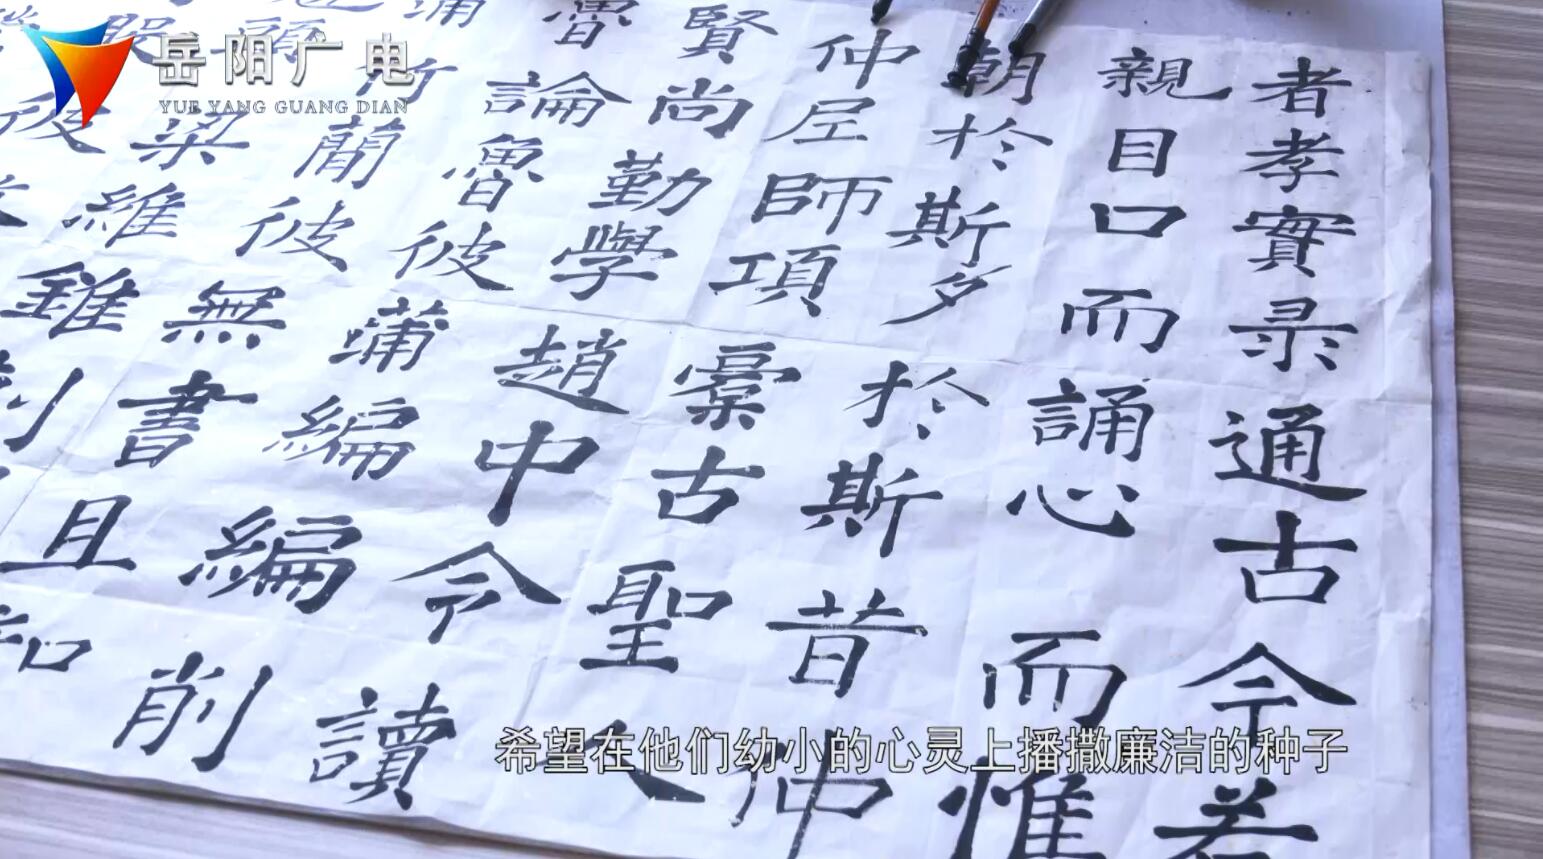 岳阳广电
YUE YANG GUANG DIAN
者孝實录通古今若
親目口而誦心而惟
朝於斯夕於斯昔仲
仲尼師項橐古聖人
賢尚勤學趙中令讀
魯論魯彼蒲編編削
蒲竹簡彼無書且知
頭梁維錐刺
股彼
希望在他们幼小的心灵上播撒廉洁的种子